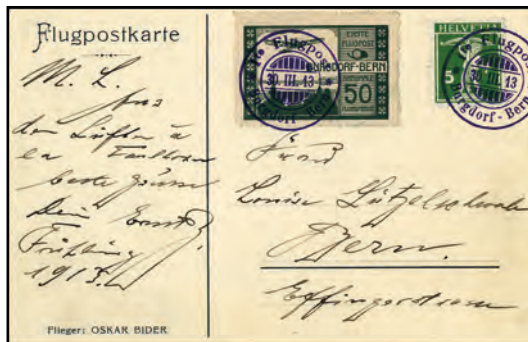 Flugpostkarte
M. L.
Aus
den Lüften
beste Grüsse
Dein Ernst
Frühling
1913.
Flieger: OSKAR BIDER
ERSTE
FLUGPOST
BURGDORF-BERN
50
HELVETIA
5
1e Flugpost
30. III. 13
Burgdorf - Bern
1e Flugpost
30. III. 13
Burgdorf - Bern
Louise
Bern.
Effingerstrasse